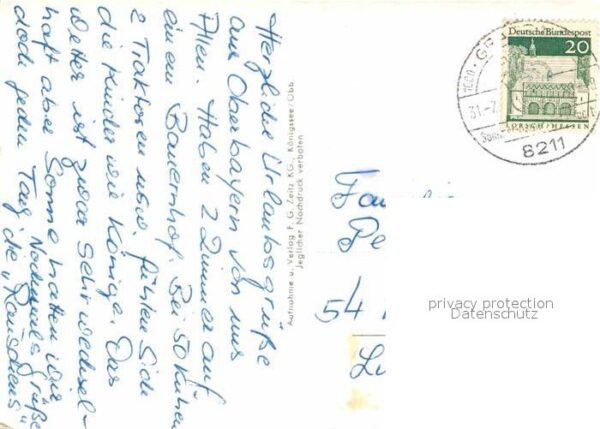 Herzliche Urlaubsgrüße
aus Oberbayern von uns
Allen. Haben 2 Zimmer auf
einem Bauernhof. Bei 50 Kühen
2 Traktoren usw. fühlen sich
die Kinder wie Könige. Das
Wetter ist zwar sehr wechsel-
haft aber Sonne hatten wir
doch jeden Tag. Nochmals Grüße
die "Rauschens"
Aufnahme u. Verlag F. G. Zeitz KG., Königssee/Obb.
Jeglicher Nachdruck verboten
Deutsche Bundespost
20
LORSCH/HESSEN
31.-7
8211
Fam
Pe
54
privacy protection
Datenschutz